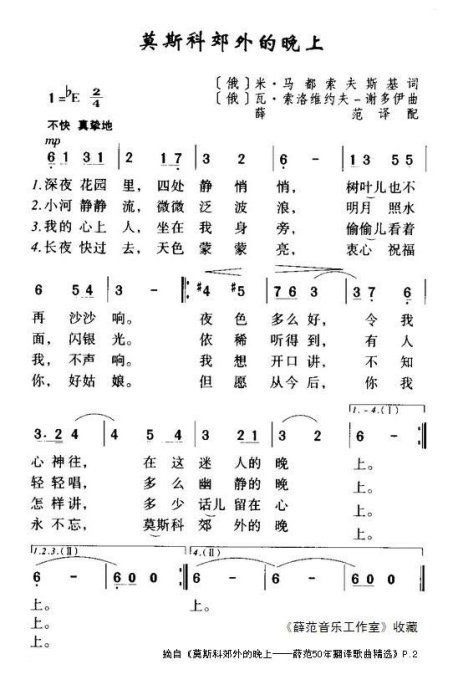 莫斯科郊外的晚上
1=♭E 2/4
〔俄〕米·马都索夫斯基词
〔俄〕瓦·索洛维约夫－谢多伊曲
薛 范译配
不快 真挚地
mp
6 1 3 1 2 1 7 3 2 6 - 1 3 5 5
1.深夜 花园 里， 四处 静 悄 悄， 树叶儿也不
2.小河 静静 流， 微微 泛 波 浪， 明月 照水
3.我的 心上 人， 坐在 我 身 旁， 偷偷儿看着
4.长夜 快过 去， 天色 蒙 蒙 亮， 衷心 祝福
6 5 4 3 - :‖: #4 #5 7 6 3 3 7 6
再 沙沙 响。 夜 色 多么 好， 令 我
面，闪银 光。 依 稀 听得 到， 有 人
我，不声 响。 我 想 开口 讲， 不 知
你，好姑 娘。 但 愿 从今 后， 你 我
1.-4.(Ⅰ)
3. 2 4 4 5 4 3 2 1 6 - :‖
心 神往， 在 这 迷 人的 晚 上。
轻轻唱， 多 么 幽 静的 晚 上。
怎样讲， 多 少 话儿 留在 心 上。
永 不忘， 莫斯科 郊 外的 晚 上。
1.2.3.(Ⅱ) 4.(Ⅱ)
6 - 6 0 0 :‖ 6 - 6 - 6 0 0 ‖
上。 上。
上。
上。
《薛范音乐工作室》收藏
摘自《莫斯科郊外的晚上——薛范50年翻译歌曲精选》P.2